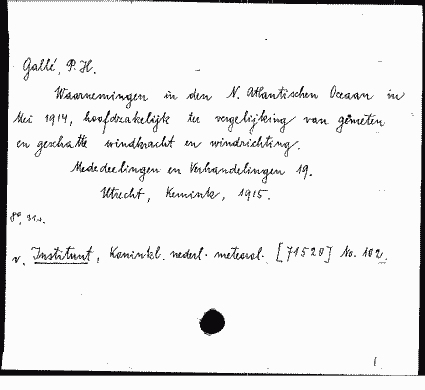 Gallé, P. H.
Waarnemingen in den N. Atlantischen Oceaan in
Mei 1914, hoofdzakelijk ter vergelijking van gemeten
en geschatte windkracht en windrichting.
Mededeelingen en Verhandelingen 19.
Utrecht, Kemink, 1915.
8°, 31 s.
v. Instituut, Koninkl. nederl. meteorol. [71520] No. 102.